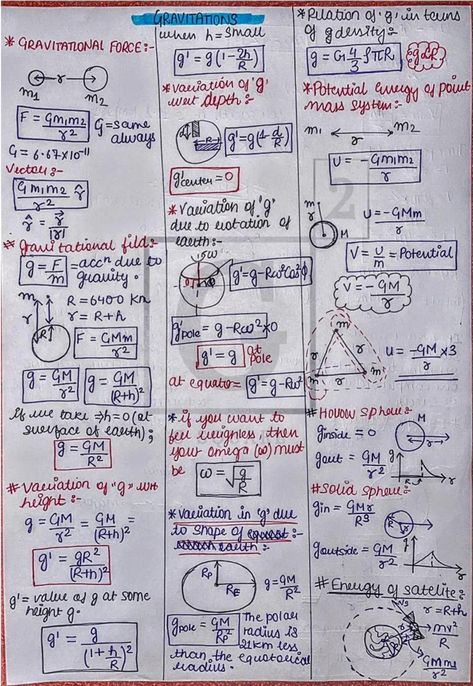 GRAVITATIONS
* GRAVITATIONAL FORCE:-
r
m1 m2
F = Gm1m2/r² G = same always
G = 6.67×10⁻¹¹
Vector:-
Gm1m2/r² r̂
r̂ = r⃗/|r|
* Gravitational fild:-
g = F/m – accⁿ due to gravity.
m
R = 6400 Km
r = R+h
r R
F = GMm/r²
g = GM/r² g = GM/(R+h)²
If we take → h=0 (at
surface of earth);
g = GM/R²
# Variation of "g" wrt
height:-
g = GM/r² = GM/(R+h)² =
g' = gR²/(R+h)²
g' = value of g at some
height g.
g' = g/(1+h/R)²
when h = small
g' = g(1-2h/R)
* Variation of 'g'
wrt depth:-
g' = g(1-d/R)
g'center = 0
* Variation of 'g'
due to rotation of
earth:-
g' = g-Rω²Cos²ϕ
g'pole = g-Rω²×0
g' = g at pole
at equator = g' = g-Rω²
* if you want to
feel weigness, then
your omega (ω) must
be ω = √g/R
* Variation in 'g' due
to shape of
earth:-
RP RE g = GM/R²
gpole = GM/RP² The polar
radius is
21km less
than the equatorical
radius.
* Relation of 'g' in terms
of density:-
g = G 4/3 ρπR, g∝R
* Potential Energy of point
mass system:-
m1 r m2
U = -Gm1m2/r
m
r
M
U = -GMm/r
V = U/m = Potential
V = -GM/r
m
r r
m r m
U = -GM/r ×3
# Hollow sphere:-
M
ginside = 0
gout = GM/r²
g
r
# Solid sphere:-
gin = GMr/R³
goutside = GM/r²
g
r
# Energy of satelite:-
r = R+h
mv²/R
GMm/r²